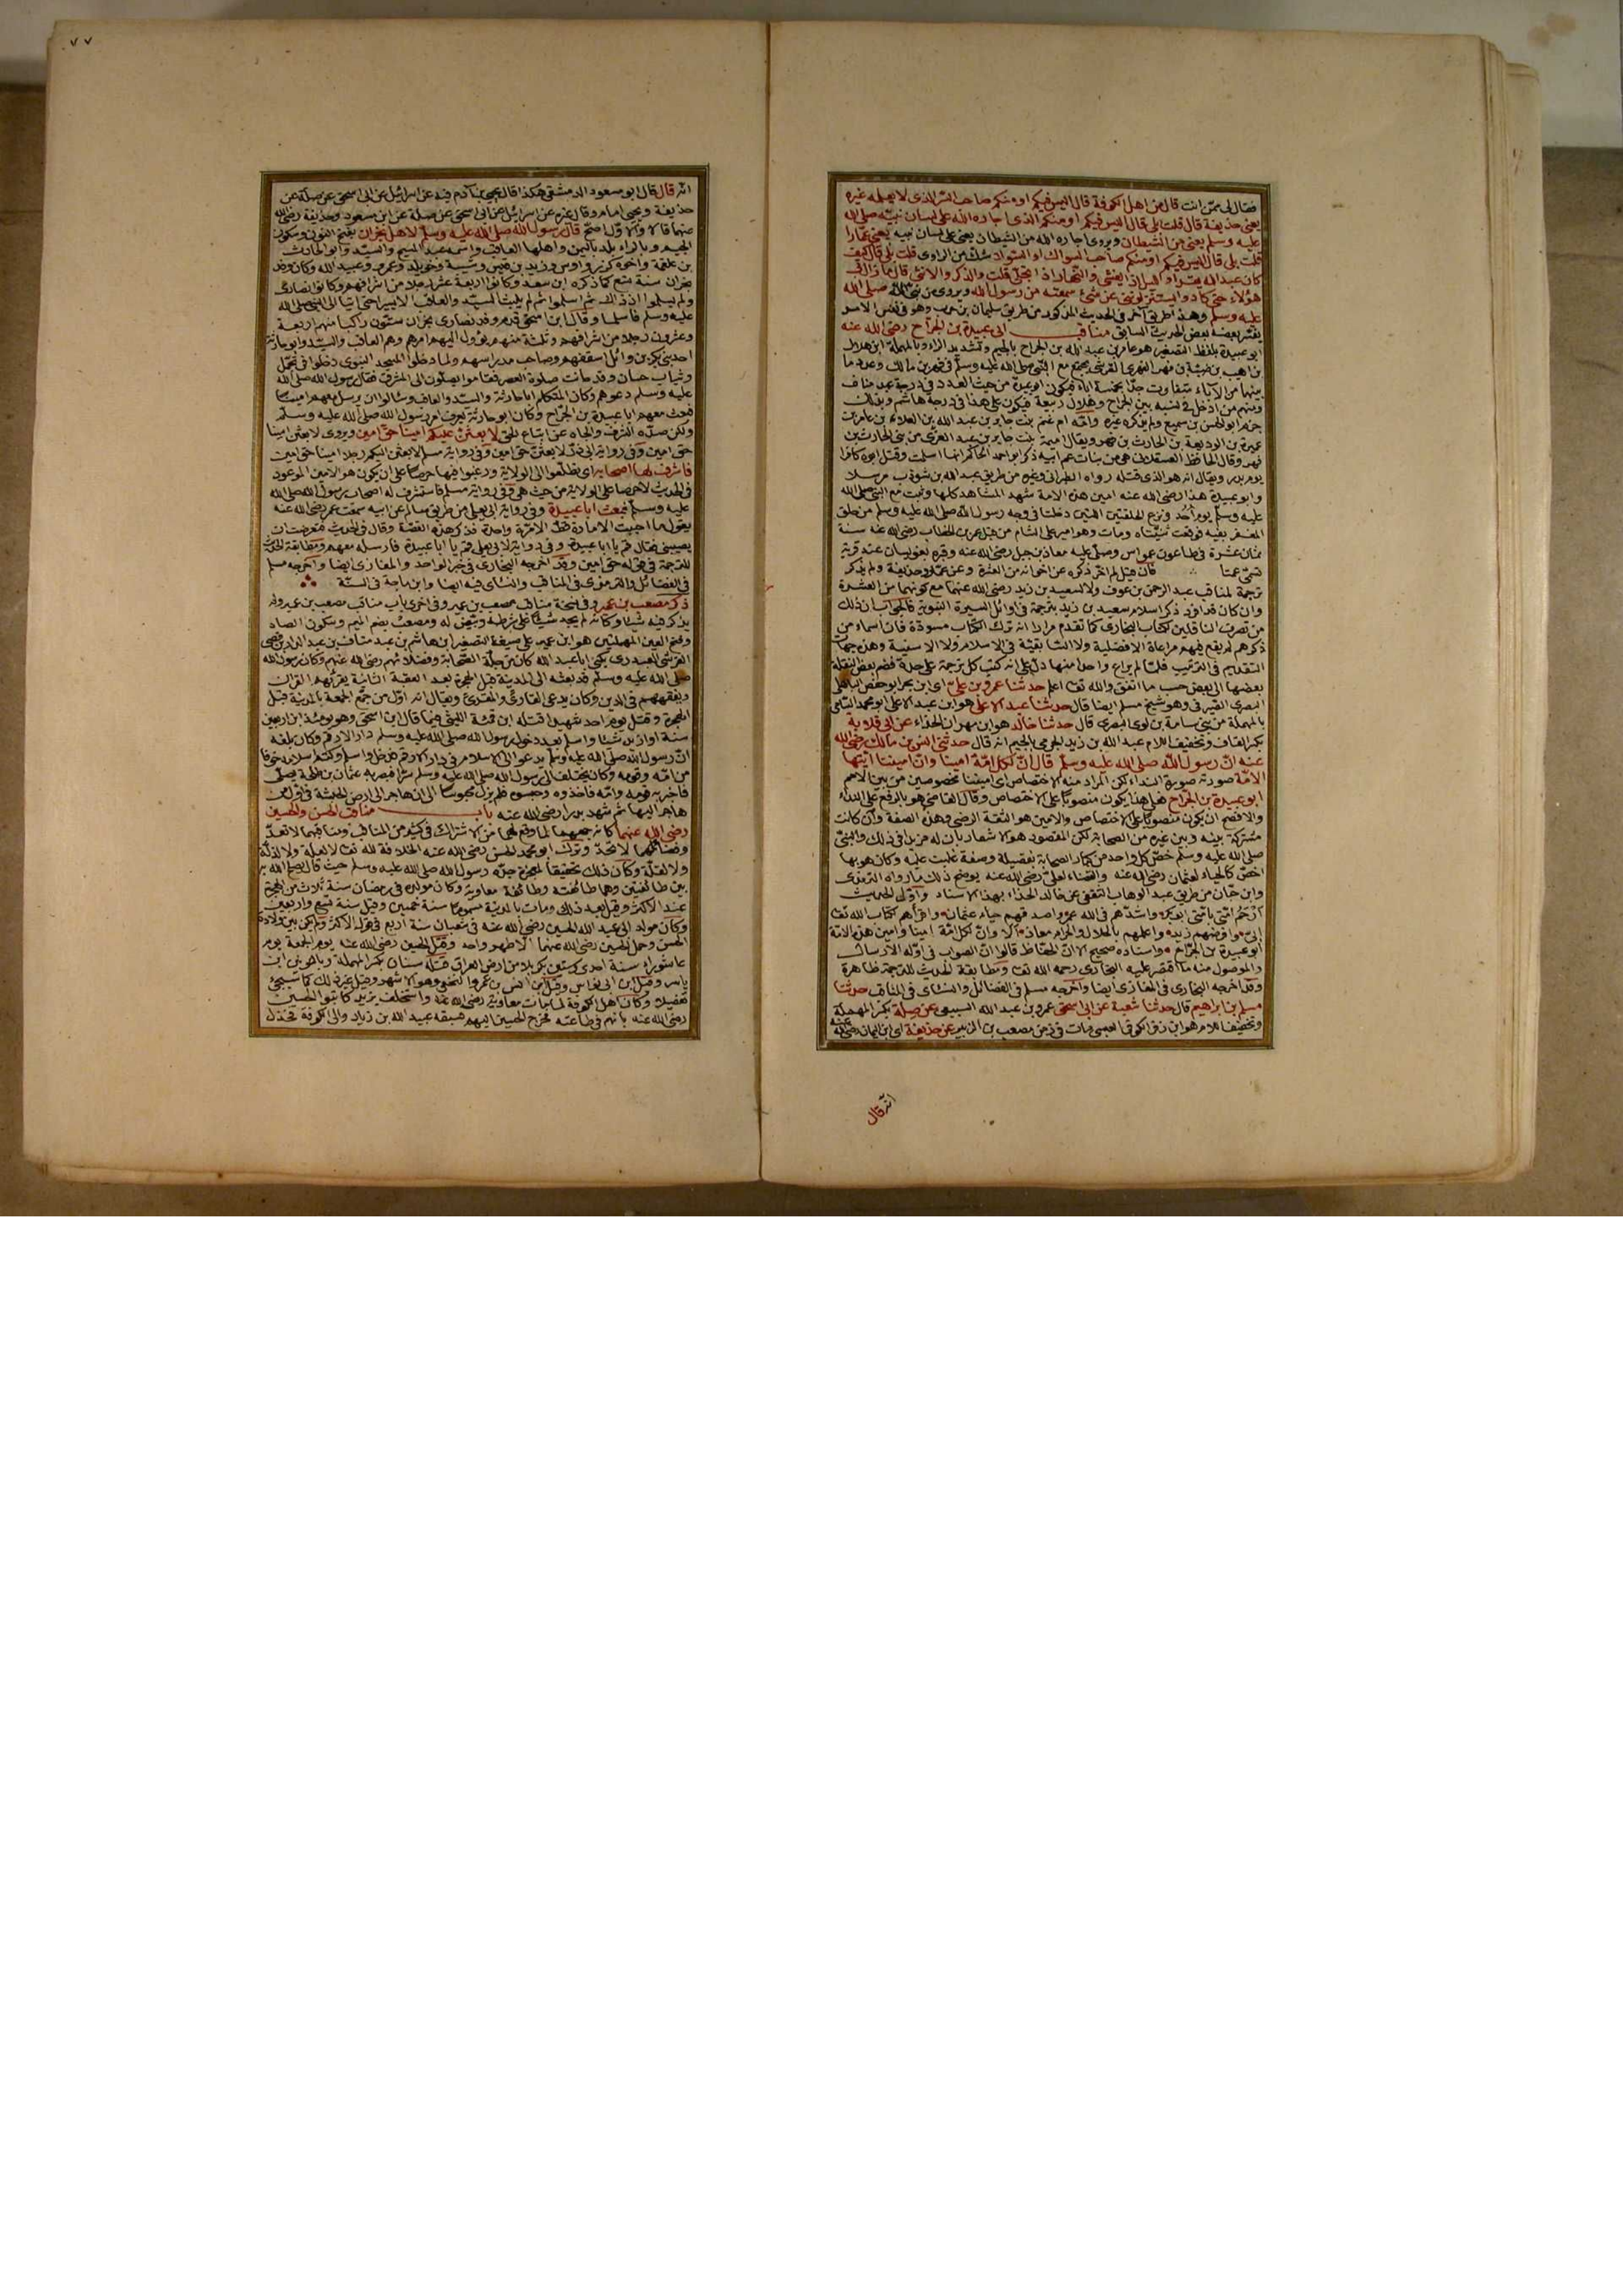 فقال لي ممن انت قال من اهل الكوفة قال اليس فيكم او منكم صاحب السر الذي لا يعلمه غيره
يعني حذيفة قال قلت بلى قال اليس فيكم او منكم الذي اجاره الله على لسان نبيه صلى الله
عليه وسلم يعني من الشيطان ويروى اجاره الله من الشيطان يعني على لسان نبيه يعني عمارا
قلت بلى قال اليس فيكم او منكم صاحب السواك او السواد شك من الراوي قلت بلى قال كيف
كان عبد الله يقرأ والليل اذا يغشى والنهار اذا تجلى قلت والذكر والانثى قال ما زال بي
هؤلاء حتى كادوا يستنزلوننى عن شئ سمعته من رسول الله ويروى من نبي الله صلى الله
عليه وسلم وهذا طريق آخر في الحديث المذكور من طريق سليمان بن حرب وهو في نفس الامر
يفسر بعضه بعض الحديث السابق مناقب ابي عبيدة بن الجراح رضي الله عنه
ابو عبيدة بلفظ التصغير هو عامر بن عبد الله بن الجراح بالجيم وتشديد الراء وبالمهملة ابن هلال
بن اهيب بن ضبة بن فهر الفهري القرشي يجتمع مع النبي صلى الله عليه وسلم في فهر بن مالك وعدد ما
بينهما من الآباء متفاوت جدا بخمسة آباء فيكون ابو عبيدة من حيث العدد في درجة عبد مناف
ومنهم من ادخل في نسبه بين الجراح وهلال ربيعة فيكون على هذا في درجة هاشم وبذلك
جزم ابو الحسن بن سميع ولم يذكره غيره وامه ام غنم بنت جابر بن عبد الله بن العلاء بن عامر بن
عميرة بن الوديعة بن الحارث بن فهر ويقال اميمة بنت جابر بن عبد العزى من بني الحارث بن
فهر وقال الحافظ العسقلاني هي من بنات عم ابيه ذكر ابو احمد الحاكم انها اسلمت وقتل ابوه كافرا
يوم بدر ويقال انه هو الذي قتله رواه الطبراني وغيره من طريق عبد الله بن شوذب مرسلا
وابو عبيدة هذا رضي الله عنه امين هذه الامة شهد المشاهد كلها وثبت مع النبي صلى الله
عليه وسلم يوم أحد ونزع الحلقتين اللتين دخلتا في وجه رسول الله صلى الله عليه وسلم من حلق
المغفر بفيه فوقعت ثنيتاه ومات وهو امير على الشام من قبل عمر بن الخطاب رضي الله عنه سنة
ثمان عشرة في طاعون عمواس وصلى عليه معاذ بن جبل رضي الله عنه وقبره بغور بيسان عند قرية
تسمى عمتا فان قيل لم اخر ذكره عن اخوانه من العشرة وعن عمار وحذيفة ولم يذكر
ترجمة لمناقب عبد الرحمن بن عوف ولا لسعيد بن زيد رضي الله عنهما مع كونهما من العشرة
وان كان قد افرد ذكر اسلام سعيد بن زيد بترجمة في اوائل السيرة النبوية فالجواب ان ذلك
من تصرف الناقلين لكتاب البخاري كما تقدم مرارا انه ترك الكتاب مسودة فان اسماء من
ذكرهم لم يقع فيهم مراعاة الافضلية ولا السابقية في الاسلام ولا الاسنية وهذه جهات
التقديم في الترتيب فلما لم يراع واحدا منها دل على انه كتب كل ترجمة على حدة فضم بعض النقلة
بعضها الى بعض حسب ما اتفق والله تعالى اعلم حدثنا عمرو بن علي اي ابن بحر ابو حفص الباهلي
البصري الصيرفي وهو شيخ مسلم ايضا قال حدثنا عبد الاعلى هو ابن عبد الاعلى ابو محمد السامي
بالمهملة من بني سامة بن لوي البصري قال حدثنا خالد هو ابن مهران الحذاء عن ابي قلابة
بكسر القاف وتخفيف اللام عبد الله بن زيد الجرمي بالجيم انه قال حدثني انس بن مالك رضي الله
عنه ان رسول الله صلى الله عليه وسلم قال ان لكل امة امينا وان اميننا ايتها
الامة صورته صورة النداء لكن المراد منه الاختصاص اي اميننا مخصوصين من بين الامم
ابو عبيدة بن الجراح فعلى هذا يكون منصوبا على الاختصاص وقال القاضي هو بالرفع على النداء
والافصح ان يكون منصوبا على الاختصاص والامين هو الثقة الرضي وهذه الصفة وان كانت
مشتركة بينه وبين غيره من الصحابة لكن المقصود هو الاشعار بان له مزيدا في ذلك والنبي
صلى الله عليه وسلم خص كل واحد من كبار الصحابة بفضيلة وصفة غلبت عليه وكان هو بها
اخص كالحياء لعثمان رضي الله عنه والقضاء لعلي رضي الله عنه يوضح ذلك ما رواه الترمذي
وابن حبان من طريق عبد الوهاب الثقفي عن خالد الحذاء بهذا الاسناد واول الحديث
ارحم امتي بامتي ابو بكر واشدهم في الله عمر واصدقهم حياء عثمان واقرأهم لكتاب الله تعالى
ابي وافرضهم زيد واعلمهم بالحلال والحرام معاذ الا وان لكل امة امينا وامين هذه الامة
ابو عبيدة بن الجراح واسناده صحيح الا ان الحفاظ قالوا ان الصواب في اوله الارسال
والموصول منه ما اقتصر عليه البخاري رحمه الله تعالى ومطابقة الحديث للترجمة ظاهرة
وقد اخرجه البخاري في المغازي ايضا واخرجه مسلم في الفضائل والنسائي في المناقب حدثنا
مسلم بن ابراهيم قال حدثنا شعبة عن ابي اسحق عمرو بن عبد الله السبيعي عن صلة بكسر المهملة
وتخفيف اللام هو ابن زفر الكوفي العبسي مات في زمن مصعب بن الزبير عن حذيفة اي ابن اليمان رضي الله عنه
انه قال
٧٧
انه قال قال ابو مسعود الدمشقي هكذا قال يحيى بن آدم فيه عن اسرائيل عن ابي اسحق عن صلة عن
حذيفة ويحيى امام وقال غيره عن اسرائيل عن ابي اسحق عن صلة عن ابن مسعود وحذيفة رضي الله
عنهما قالا والاول اصح قال رسول الله صلى الله عليه وسلم لاهل نجران بفتح النون وسكون
الجيم وبالراء بلد باليمن واهلها العاقب واسمه عبد المسيح والسيد وابو الحارث
بن علقمة واخوه كرز واوس وزيد بن قيس وشيبة وخويلد وعمرو وعبيد الله وكان وفد
نجران سنة تسع كما ذكره ابن سعد وكانوا اربعة عشر رجلا من اشرافهم وكانوا نصارى
ولم يسلموا اذ ذاك ثم اسلموا ثم لم يلبث السيد والعاقب الا يسيرا حتى اتيا الى النبي صلى الله
عليه وسلم فاسلما وقال ابن اسحق قدم وفد نصارى نجران ستون راكبا منهم اربعة
وعشرون رجلا من اشرافهم وثلثة منهم يؤول اليهم امرهم وهم العاقب والسيد وابو حارثة
احد بني بكر بن وائل اسقفهم وصاحب مدراسهم ولما دخلوا المسجد النبوي دخلوا في تجمل
وثياب حسان وقد حانت صلوة العصر فقاموا يصلون الى المشرق فقال رسول الله صلى الله
عليه وسلم دعوهم وكان المتكلم ابا حارثة والسيد والعاقب وسألوا ان يرسل معهم امينا
فبعث معهم ابا عبيدة بن الجراح وكان ابو حارثة يعرف امر رسول الله صلى الله عليه وسلم
ولكن صده الشرف والجاه عن اتباع الحق لا بعثن عليكم امينا حق امين ويروى لابعثن امينا
حق امين وفي رواية ابي ذر لابعثن حق امين وفي رواية مسلم لابعثن اليكم رجلا امينا حق امين
فاشرف لها اصحابه اي تطلعوا الى الولاية ورغبوا فيها حرصا على ان يكون هو الامين الموعود
في الحديث لا حرصا على الولاية من حيث هي وفي رواية مسلم فاستشرف له اصحاب رسول الله صلى الله
عليه وسلم فبعث ابا عبيدة وفي رواية ابي يعلى من طريق سالم عن ابيه سمعت عمر رضي الله عنه
يقول ما احببت الامارة قط الا مرة واحدة فذكر هذه القصة وقال في الحديث فتعرضت ان
يصيبني فقال قم يا ابا عبيدة وفي رواية لابي يعلى قم يا ابا عبيدة فارسله معهم ومطابقة الحديث
للترجمة في قوله حق امين وقد اخرجه البخاري في خبر الواحد والمغازي ايضا واخرجه مسلم
في الفضائل والترمذي في المناقب والنسائي فيه ايضا وابن ماجة في السنة
ذكر مصعب بن عمير وفي نسخة مناقب مصعب بن عمير وفي اخرى باب مناقب مصعب بن عمير ولم
يذكر فيه شيئا وكانه لم يجد شيئا على شرطه وبيض له ومصعب بضم الميم وسكون الصاد
وفتح العين المهملتين هو ابن عمير على صيغة التصغير ابن هاشم بن عبد مناف بن عبد الدار بن قصي
القرشي العبدري يكنى ابا عبد الله كان من جلة الصحابة وفضلائهم رضي الله عنهم وكان رسول الله
صلى الله عليه وسلم قد بعثه الى المدينة قبل الهجرة بعد العقبة الثانية يقرئهم القرآن
ويفقههم في الدين وكان يدعى القارئ والمقرئ ويقال انه اول من جمع الجمعة بالمدينة قبل
الهجرة وقتل يوم احد شهيدا قتله ابن قمئة الليثي فيما قال ابن اسحق وهو يومئذ ابن اربعين
سنة او ازيد شيئا واسلم بعد دخول رسول الله صلى الله عليه وسلم دار الارقم وكان بلغه
ان رسول الله صلى الله عليه وسلم يدعو الى الاسلام في دار الارقم فدخل واسلم وكتم اسلامه خوفا
من امه وقومه وكان يختلف الى رسول الله صلى الله عليه وسلم سرا فبصر به عثمان بن طلحة يصلي
فاخبر به قومه وامه فاخذوه وحبسوه فلم يزل محبوسا الى ان هاجر الى ارض الحبشة في اول من
هاجر اليها ثم شهد بدرا رضي الله عنه باب مناقب الحسن والحسين
رضي الله عنهما كانه جمعهما لما وقع لهما من الاشتراك في كثير من المناقب ومناقبهما لا تعد
وفضائلهما لا تحد وترك ابو محمد الحسن رضي الله عنه الخلافة لله تعالى لا لعلة ولا لذلة
ولا لقلة وكان ذلك تحقيقا لمعجزة جده رسول الله صلى الله عليه وسلم حيث قال يصلح الله به
بين طائفتين وهما طائفته وطائفة معاوية وكان مولده في رمضان سنة ثلاث من الهجرة
عند الاكثر وقيل بعد ذلك ومات بالمدينة مسموما سنة خمسين وقيل سنة تسع واربعين
وكان مولد ابي عبد الله الحسين رضي الله عنه في شعبان سنة اربع في قول الاكثر ولم يكن بين ولادة
الحسن وحمل الحسين رضي الله عنهما الا طهر واحد وقتل الحسين رضي الله عنه يوم الجمعة يوم
عاشوراء سنة احدى وستين بكربلاء من ارض العراق قتله سنان بكسر المهملة
وقيل غير ذلك كما سيجئ
تفصيله وكان اهل الكوفة لما مات معاوية رضي الله عنه واستخلف يزيد كاتبوا الحسين
رضي الله عنه بانهم في طاعته فخرج الحسين اليهم فسبقه عبيد الله بن زياد والي الكوفة فخذل